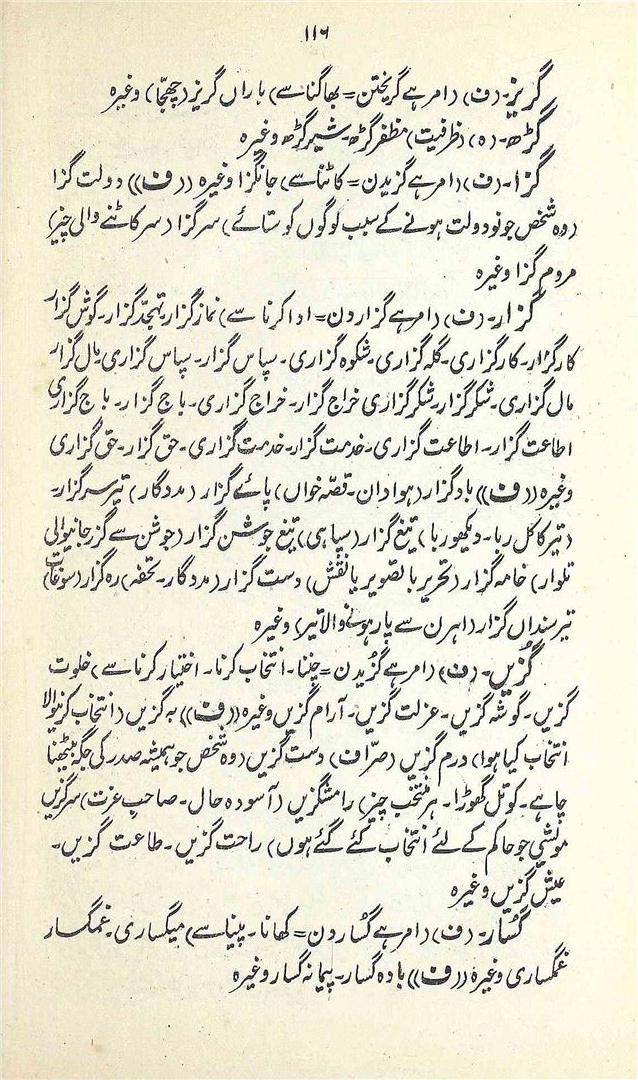 ۱۱۶
گریز۔ (ف) (امر ہے گریختن = بھاگنا سے) باراں گریز (چھجّا) وغیرہ
گڑھ۔ (ہ) (ظرفیت) مظفر گڑھ۔ شیر گڑھ وغیرہ
گزا۔ (ف) (امر ہے گزیدن = کاٹنا سے) جانگزا وغیرہ ((ف)) دولت گزا
(وہ شخص جو نو دولت ہونے کے سبب لوگوں کو ستائے) سر گزا (سر کاٹنے والی چیز)
مردم گزا وغیرہ
گزار۔ (ف) (امر ہے گزاردن = ادا کرنا سے) نماز گزار تہجّد گزار۔ گوش گزار
کار گزار۔ کار گزاری۔ گلہ گزاری۔ شکوہ گزاری۔ سپاس گزار۔ سپاس گزاری۔ مال گزار
مال گزاری۔ شکر گزار۔ شکر گزاری خراج گزار۔ خراج گزاری۔ باج گزار۔ باج گزاری
اطاعت گزار۔ اطاعت گزاری۔ خدمت گزار۔ خدمت گزاری۔ حق گزار۔ حق گزاری
وغیرہ ((ف)) باد گزار (ہوا دان۔ قصّہ خواں) پائے گزار (مددگار) تیر سر گزار۔
(تیر کاکل ربا۔ دیکھو ربا) تیغ گزار (سپاہی) تیغ جوشن گزار (جوشن سے گزر جانیوالی
تلوار) خامہ گزار (تحریر یا تصویر یا نقش) دست گزار (مددگار۔ تحفہ) رہ گزار (سوغات)
تیر سنداں گزار (اہرن سے پار ہونے والا تیر) وغیرہ
گُزیں۔ (ف) (امر ہے گُزیدن = چننا۔ انتخاب کرنا۔ اختیار کرنا سے) خلوت
گزیں۔ گوشہ گزیں۔ عزلت گزیں۔ آرام گزیں وغیرہ ((ف)) بہ گزیں (انتخاب کرنیوالا
انتخاب کیا ہوا) درم گزیں (صرّاف) دست گزیں (وہ شخص جو ہمیشہ صدر کی جگہ بیٹھنا
چاہے۔ کوتل گھوڑا۔ ہر منتخب چیز) رامشگزیں (آسودہ حال۔ صاحبِ عزت) سرگزیں
مویشی جو حاکم کے لئے انتخاب کئے گئے ہوں) راحت گزیں۔ طاعت گزیں۔
عیش گزیں وغیرہ
گُسار۔ (ف) (امر ہے گساردن = کھانا۔ پینا سے) میگساری۔ غمگسار
غمگساری وغیرہ ((ف)) بادہ گسار۔ پیمانہ گسار وغیرہ